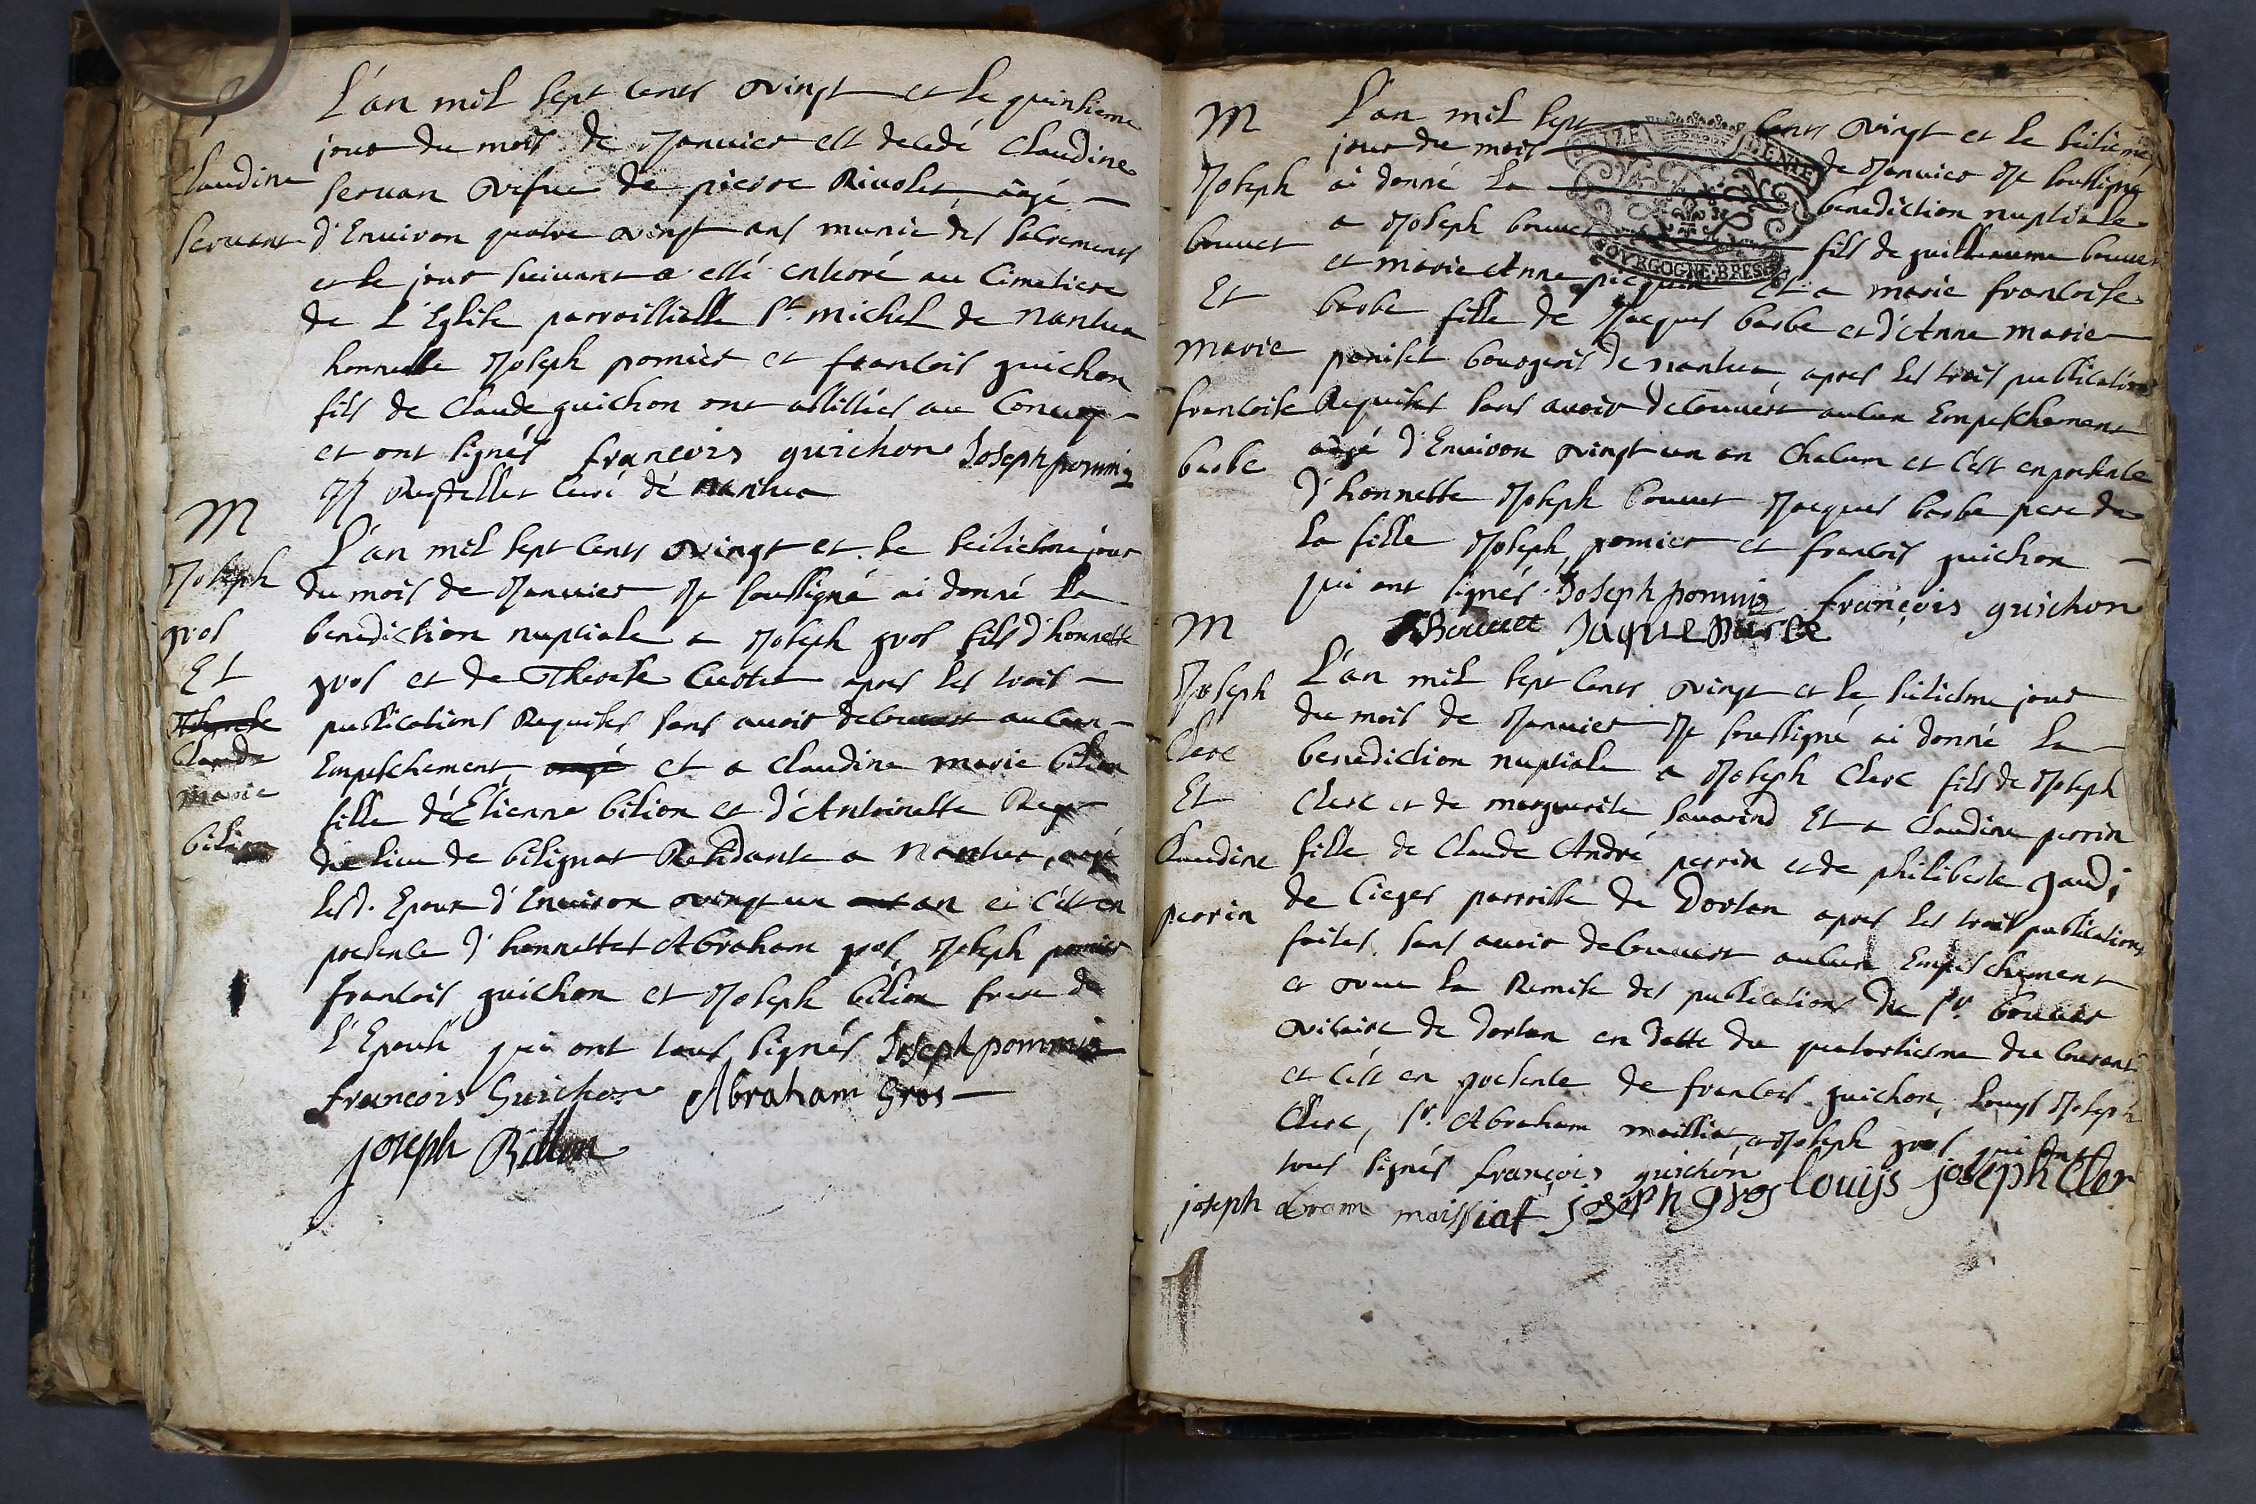 L'an mil sept cents vingt et le quinsieme
jour du mois de Janvier est decedé Claudine
Claudine
servan vefue de pierre Rivolet aagé
servant
d'Environ quatre vingt ans munie des sacrements
et le jour suivant a esté enterré au Cimetiere
de L'Eglise parroissialle St. michel de nantua
honneste Joseph pomier et francois guichon
fils de Claude guichon ont assistées au Convoy
et ont signés françois guichon Joseph pommier
curé de nantua
M
Joseph
gros
Et
Therese
Claudine
marie
bilion
L'an mil sept cents vingt et le seiziesme jour
du mois de Janvier Je soussigné ai donné la
benediction nuptiale a Joseph gros fils d'honneste
gros et de Therese apres les trois
publications Requises sans avoir decouvert aucun
Empeschement aagé et a claudine marie bilion
fille d'Etienne bilion et d'Antoinette Rey
du lieu de bilignat Residante a Nantua, aagé
lesd. Epoux d'Environ vingt un an et c'est en
presence d'honnettes Abraham gros, Joseph pomier
francois guichon et Joseph bilion frere de
l'Epouse qui ont tous signés Joseph pommier
francois Guichon Abraham Gros
joseph Billion
M
Joseph
bouvet
Et
marie
francoise
barbe
L'an mil sept cents vingt et le seiziéme
jour du mois de Janvier Je soussigné
ai donné La benediction nuptiale
a Joseph bouvet fils de guillaume bouvet
et marie Anne Et a marie francoise
barbe fille de Jacques barbe et d'Anne marie
poniset bourgeois de nantua, apres les trois publications
Requises sans avoir decouvert aucun Empeschement
aagé d'Environ vingt un an Chacun et c'est en presence
d'honnette Joseph bouvet Jacques barbe pere de
la fille Joseph pomier et francois guichon
qui ont signés Joseph pommier françois guichon
Bouvet Jaque Barbe
M
Joseph
Clerc
Et
Claudine
perrin
L'an mil sept cents vingt et le seiziesme jour
du mois de Janvier Je soussigné ai donné la
benediction nuptiale a Joseph Clerc fils de Joseph
Clerc et de marguerite savarind Et a Claudine perrin
fille de Claude André perrin et de philiberte gaudi
de Cieges parroisse de Dortan apres les trois publications
faites sans avoir decouvert aucun Empeschement
et vue la Remise des publications du Sr. bouvier
vicaire de dortan en datte du quatorziesme du Courant
et c'est en presence de francois guichon, Louys Joseph
Clerc, Sr. Abraham maillia, et Joseph gros qui ont
tous signés françois guichon louijs joseph Cler
joseph abram maissiat joseph gros
GENER
BOVRGOGNE·BRESSE